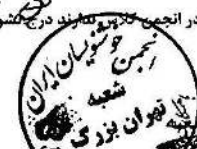 در انجمن کلاس ندارند درج شود
انجمن خوشنویسان ایران
شعبه
تهران بزرگ